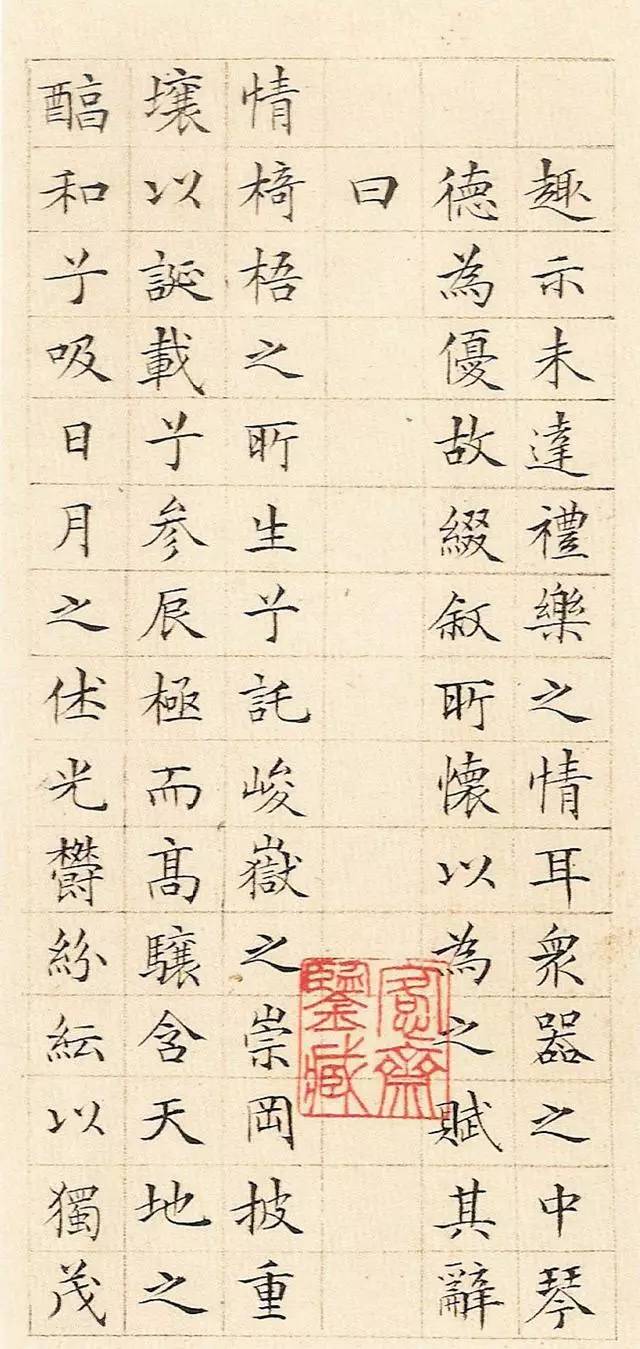 趣示未達禮樂之情耳衆器之中琴
德為優故綴叙所懷以為之賦其辭
曰
情椅梧之所生兮託峻嶽之崇岡披重
壤以誕載兮参辰極而髙驤含天地之
醕和兮吸日月之休光欝紛紜以獨茂
愙齋
鑒藏